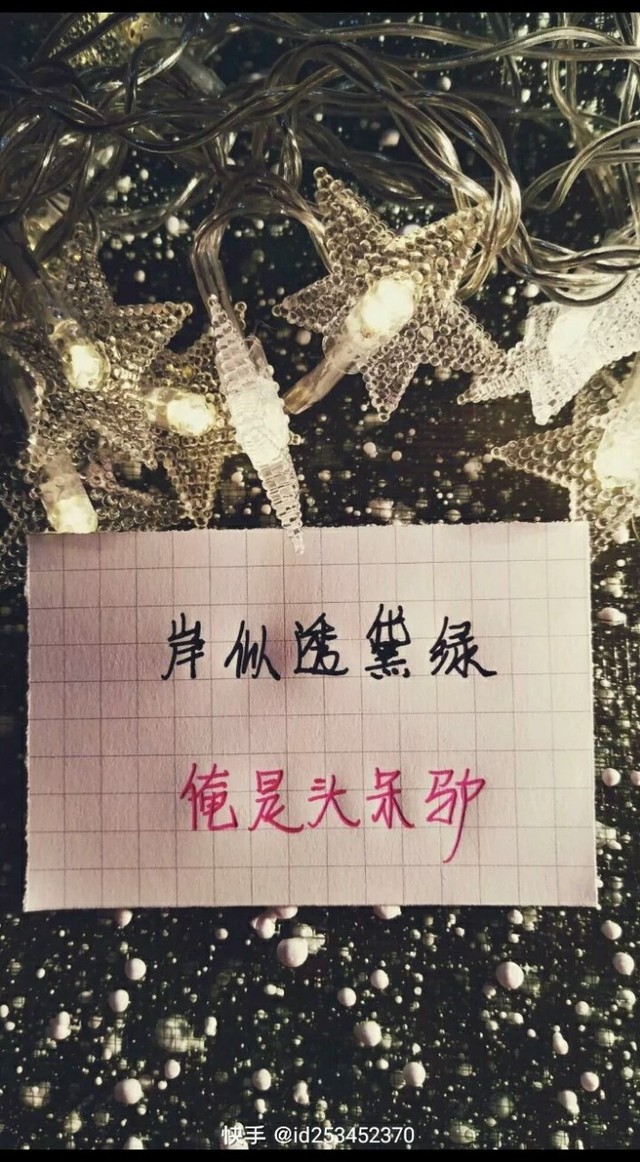 岸似透黛绿
俺是头呆驴
快手 @id253452370